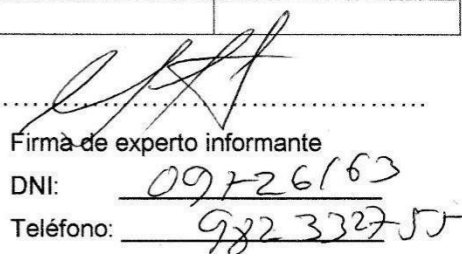 Firma de experto informante
DNI: 09726163
Teléfono: 982332755